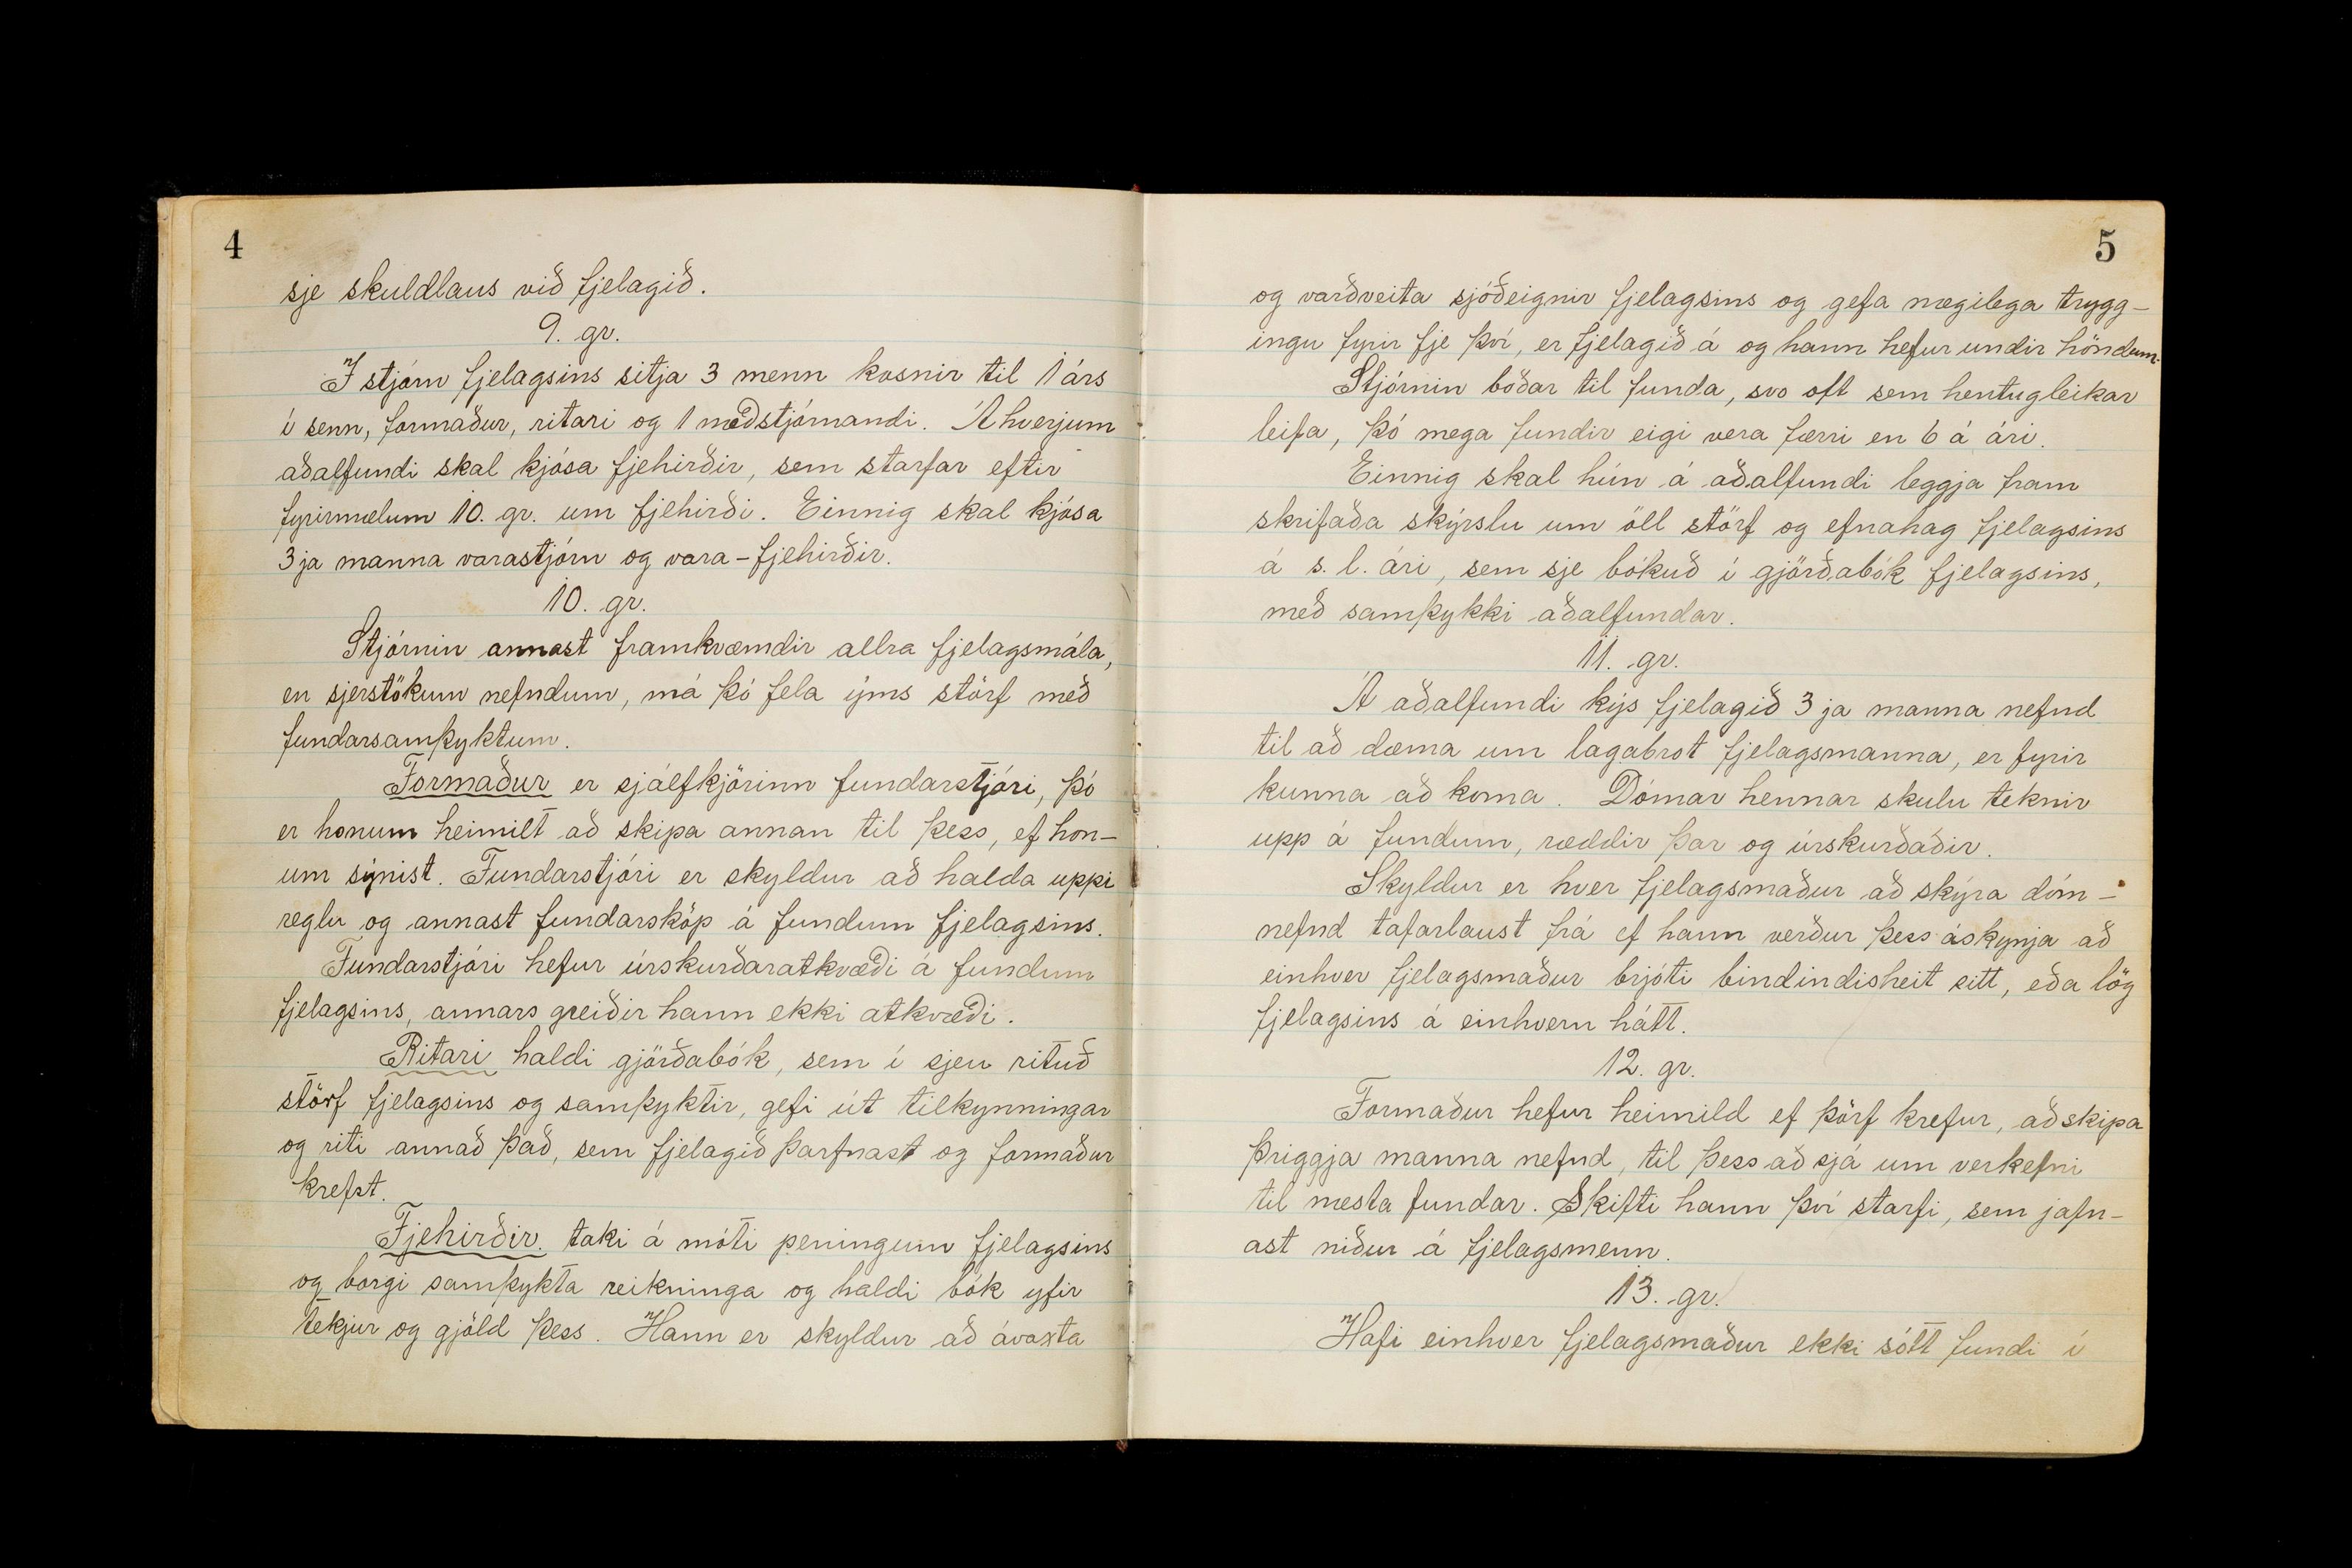 4
sje skuldlaus við fjelagið.
9. gr.
Í stjórn fjelagsins sitja 3 menn kosnir til 1 árs
í senn, formaður, ritari og 1 meðstjórnandi. Á hverjum
aðalfundi skal kjósa fjehirðir, sem starfar eftir
fyrirmælum 10. gr. um fjehirði. Einnig skal kjósa
3ja manna varastjórn og vara-fjehirðir.
10. gr.
Stjórnin annast framkvæmdir allra fjelagsmála,
en sjerstökum nefndum, má þó fela ýms störf með
fundarsamþyktum.
Formaður er sjálfkjörinn fundarstjóri, þó
er honum heimilt að skipa annan til þess, ef hon-
um sýnist. Fundarstjóri er skyldur að halda uppi
reglu og annast fundarsköp á fundum fjelagsins.
Fundarstjóri hefur úrskurðaratkvæði á fundum
fjelagsins, annars greiðir hann ekki atkvæði.
Ritari haldi gjörðabók, sem í sjeu rituð
störf fjelagsins og samþyktir, gefi út tilkynningar
og riti annað það, sem fjelagið þarfnast og formaður
krefst.
Fjehirðir. taki á móti peningum fjelagsins
og borgi samþykta reikninga og haldi bók yfir
tekjur og gjöld þess. Hann er skyldur að ávaxta
5
og varðveita sjóðeignir fjelagsins og gefa nægilega trygg-
ingu fyrir fje því, er fjelagið á og hann hefur undir höndum.
Stjórnin boðar til funda, svo oft sem hentugleikar
leifa, þó mega fundir eigi vera færri en 6 á ári.
Einnig skal hún á aðalfundi leggja fram
skrifaða skýrslu um öll störf og efnahag fjelagsins
á s. l. ári, sem sje bókuð í gjörðabók fjelagsins,
með samþykki aðalfundar.
11. gr.
Á aðalfundi kýs fjelagið 3ja manna nefnd
til að dæma um lagabrot fjelagsmanna, er fyrir
kunna að koma. Dómar hennar skulu teknir
upp á fundum, ræddir þar og úrskurðaðir.
Skyldur er hver fjelagsmaður að skýra dóm-
nefnd tafarlaust frá ef hann verður þess áskynja að
einhver fjelagsmaður brjóti bindindisheit sitt, eða lög
fjelagsins á einhvern hátt.
12. gr.
Formaður hefur heimild ef þörf krefur, að skipa
þriggja manna nefnd, til þess að sjá um verkefni
til næsta fundar. Skifti hann því starfi, sem jafn-
ast niður á fjelagsmenn.
13. gr.
Hafi einhver fjelagsmaður ekki sótt fundi í